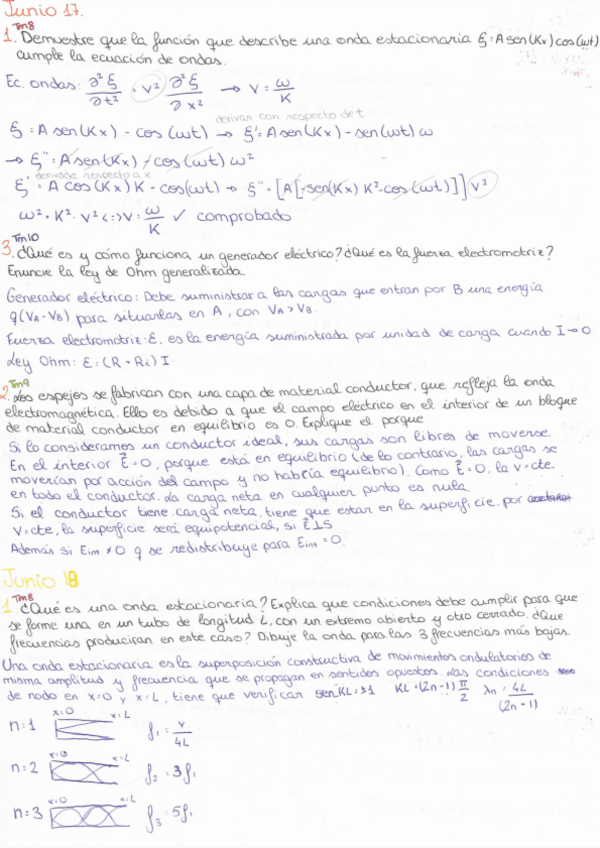 Junio 17.
Tm8
1. Demuestre que la función que describe una onda estacionaria ξ = A sen(Kx) cos(ωt)
cumple la ecuación de ondas.
Ec. ondas: ∂²ξ/∂t² = v² ∂²ξ/∂x² → v = ω/K
derivan con respecto de t
ξ = A sen(Kx) - cos(ωt) → ξ' = A sen(Kx) - sen(ωt) ω
→ ξ'' = A sen(Kx) - cos(ωt) ω²
derivada respecto a x
ξ' = A cos(Kx) K - cos(ωt) → ξ'' = [A[-sen(Kx) K² - cos(ωt)]] v²
ω² = K² · v² <-> v = ω/K ✓ comprobado
Tm10
3. ¿Qué es y cómo funciona un generador eléctrico? ¿Qué es la fuerza electromotriz?
Enuncie la ley de Ohm generalizada.
Generador eléctrico: Debe suministrar a las cargas que entran por B una energía
q(VA - VB) para situarlas en A, con VA > VB.
Fuerza electromotriz: ε, es la energía suministrada por unidad de carga cuando I → 0
Ley Ohm: ε = (R + Ri) I
Tm9
2. Los espejos se fabrican con una capa de material conductor, que refleja la onda
electromagnética. Ello es debido a que el campo eléctrico en el interior de un bloque
de material conductor en equilibrio es 0. Explique el porque
Si lo consideramos un conductor ideal, sus cargas son libres de moverse.
En el interior E⃗ = 0, porque está en equilibrio (de lo contrario, las cargas se
moverían por acción del campo y no habría equilibrio). Como E⃗ = 0, la v = cte.
en todo el conductor. La carga neta en cualquier punto es nula.
Si el conductor tiene carga neta, tiene que estar en la superficie, por
V = cte, la superficie será equipotencial, si E⃗ ⊥ S
Además si Eint ≠ 0 q se redistribuye para Eint = 0.
Junio 18
Tm8
1. ¿Qué es una onda estacionaria? Explica que condiciones debe cumplir para que
se forme una en un tubo de longitud L, con un extremo abierto y otro cerrado. ¿Que
frecuencias produciran en este caso? Dibuje la onda para las 3 frecuencias más bajas.
Una onda estacionaria es la superposición constructiva de movimientos ondulatorios de
misma amplitud y frecuencia que se propagan en sentidos opuestos. Las condiciones
de nodo en x=0 y x=L, tiene que verificar sen KL = ±1 KL = (2n-1) π/2 λn = 4L/(2n-1)
n=1 x=0 x=L f₁ = v/4L
n=2 x=0 x=L f₂ = 3f₁
n=3 x=0 x=L f₃ = 5f₁